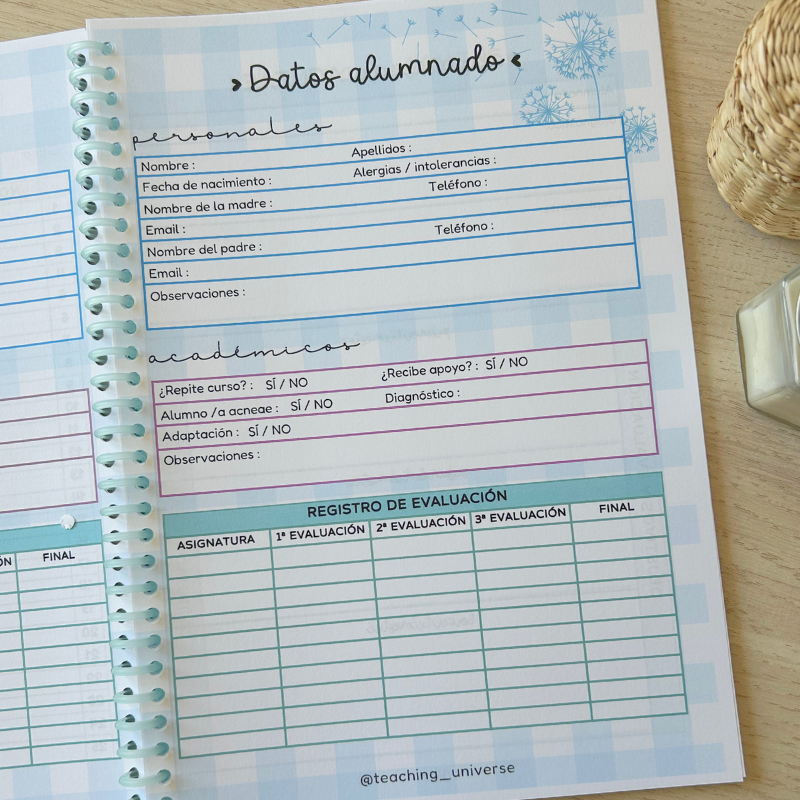 Datos alumnado
personales
Nombre : Apellidos :
Fecha de nacimiento : Alergias / intolerancias :
Nombre de la madre : Teléfono :
Email :
Nombre del padre : Teléfono :
Email :
Observaciones :
académicos
¿Repite curso? : SÍ / NO ¿Recibe apoyo? : SÍ / NO
Alumno /a acneae : SÍ / NO Diagnóstico :
Adaptación : SÍ / NO
Observaciones :
REGISTRO DE EVALUACIÓN
ASIGNATURA 1ª EVALUACIÓN 2ª EVALUACIÓN 3ª EVALUACIÓN FINAL
ÓN FINAL
@teaching_universe